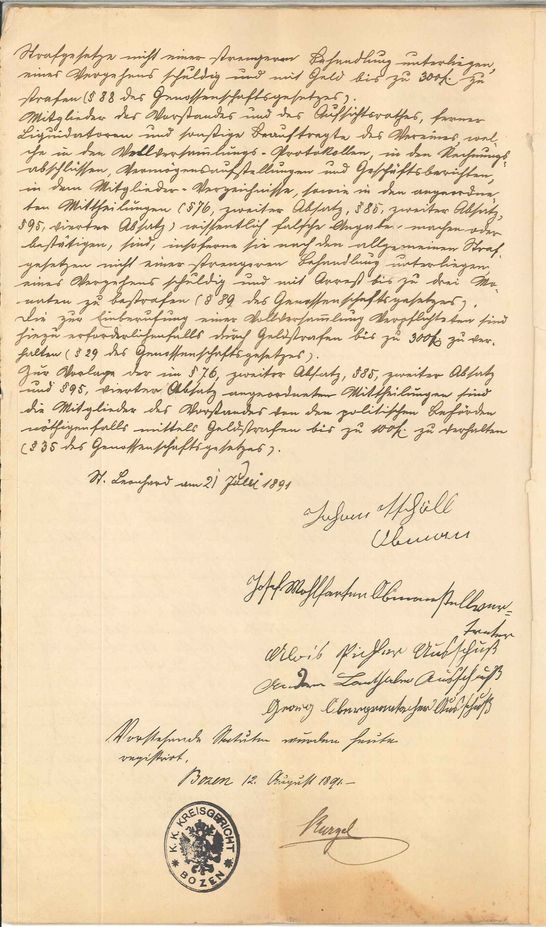 Strafgesetze nicht einer strengeren Behandlung unterliegen,
eines Vergehens schuldig und mit Geld bis zu 300f. zu
strafen (§ 88 des Genossenschaftsgesetzes).
Mitglieder des Vorstandes und des Aufsichtsrathes, ferner
Liquidatoren und sonstige Beauftragte des Vereines, wel-
che in den Vollversammlungs-Protokollen, in den Rechnungs-
abschlüssen, Vermögensaufstellungen und Geschäftsberichten,
in dem Mitglieder-Verzeichnisse, sowie in den angeordne-
ten Mittheilungen (§ 76, zweiter Absatz, § 85, zweiter Absatz,
§ 95, vierter Absatz) wissentlich falsche Angaben machen oder
bestätigen, sind, insoferne sie nach den allgemeinen Straf-
gesetzen nicht einer strengeren Behandlung unterliegen,
eines Vergehens schuldig und mit Arrest bis zu drei Mo-
naten zu bestrafen (§ 89 des Genossenschaftsgesetzes).
Die zur Einberufung einer Vollversammlung Verpflichteten sind
hiezu erforderlichenfalls durch Geldstrafen bis zu 300f. zu ver-
halten (§ 29 des Genossenschaftsgesetzes).
Zur Vorlage der im § 76, zweiter Absatz, § 85, zweiter Absatz
und § 95, vierter Absatz angeordneten Mittheilungen sind
die Mitglieder des Vorstandes von den politischen Behörden
nöthigenfalls mittels Geldstrafen bis zu 100f. zu verhalten
(§ 35 des Genossenschaftsgesetzes).
St. Leonhard am 21 Juli 1891
Johann
Obmann
Josef Wohlfarter Obmannstellver-
treter
Alois Pichler Ausschuß
Lanthaler Ausschuß
Georg Ausschuß
Vorstehende Statuten wurden heute
registrirt.
Bozen 12. August 1891.-
K. K. KREISGERICHT
BOZEN